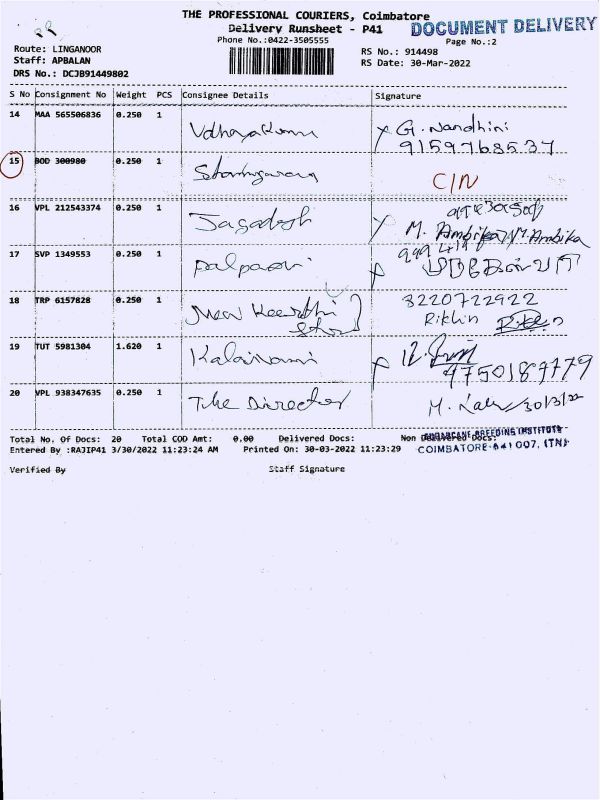 THE PROFESSIONAL COURIERS, Coimbatore
Delivery Runsheet - P41
DOCUMENT DELIVERY
Phone No.:0422-3505555
Page No.:2
Route: LINGANOOR
RS No.: 914498
Staff: APBALAN
RS Date: 30-Mar-2022
DRS No.: DCJB91449802
S No Consignment No Weight PCS Consignee Details Signature
14 MAA 565506836 0.250 1 Vdhayakumar G. Nandhini
9159768537
15 BOD 300980 0.250 1 CIN
16 VPL 212543374 0.250 1 Jagadesh
M. Ambika M. Ambika
17 SVP 1349553 0.250 1 Palpandi
18 TRP 6157828 0.250 1 New Keerthi 8220722922
Store Riklin
19 TUT 5981304 1.620 1 Kalaivani
9750187779
20 VPL 938347635 0.250 1 The Director 30/3/22
Total No. Of Docs: 20 Total COD Amt: 0.00 Delivered Docs: Non Delivered Docs:
SUGARCANE BREEDING INSTITUTE
Entered By :RAJIP41 3/30/2022 11:23:24 AM Printed On: 30-03-2022 11:23:29
COIMBATORE-641 007, (TN)
Verified By Staff Signature